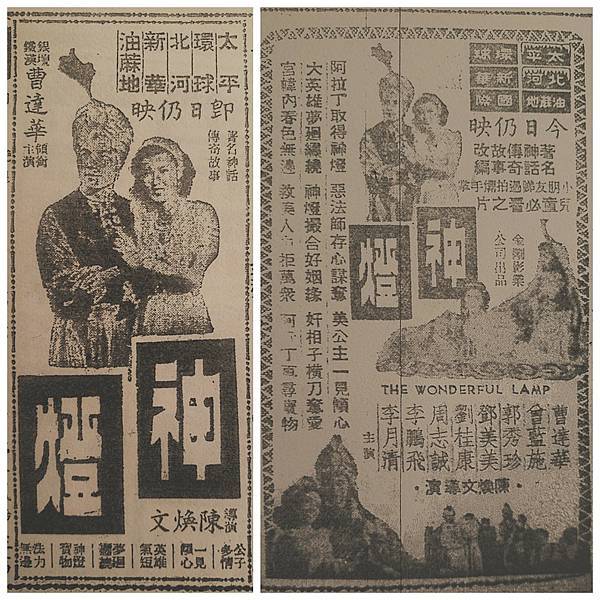 太平
環球
北河
新華
油蔴地
即日仍映
著名神話
傳奇故事
銀壇鐵漢
曹達華
領銜主演
神燈
導演 陳煥文
公子多情
英雄氣短
一見傾心
神燈寶物
法力無邊
太平 環球
北河 新華
油蔴地 國際
今日仍映
著名
神話
傳奇
故事
改編
小朋友睇過拍爛手掌
兒童必看之片
金剛影業
公司出品
神燈
阿拉丁取得神燈 惡法師存心謀奪 美公主一見傾心
大英雄夢廻 神燈撮合好姻緣 奸相子橫刀奪愛
宮幃內春色無邊 救美人 拒萬眾 阿 丁 尋寶物
THE WONDERFUL LAMP
曹達華
曾藍施
郭秀珍
鄧美美
劉桂康
周志誠
李鵬飛
李月清
主演
·陳煥文導演·